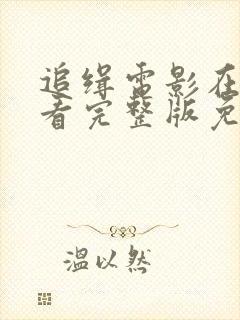 追缉电影在
看完整版免
温以然